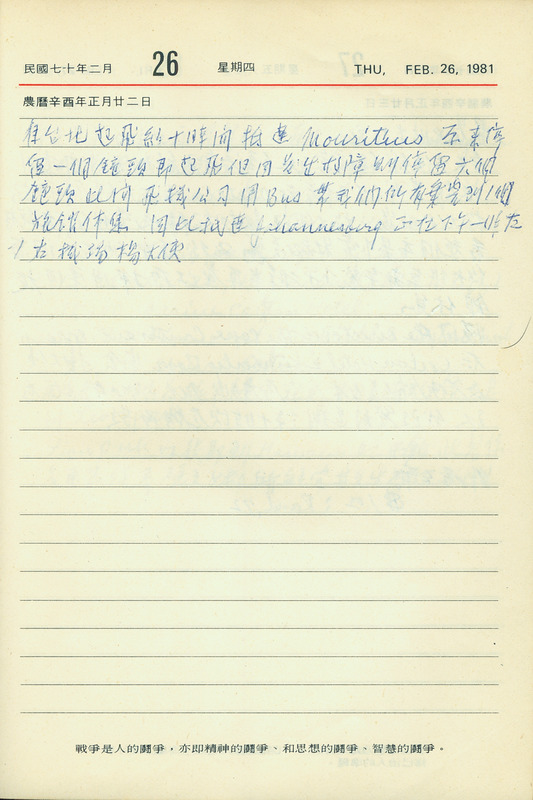 民國七十年二月 26 星期四 THU, FEB. 26, 1981
農曆辛酉年正月廿二日
自台北起飛約十時間抵達 Mauritius 原來停
留一個鐘頭即起飛但因發生故障則停留六個
鐘頭 此間飛機公司用 Bus 帶我們所有乘客到1個
旅館休息 因此抵達 Johannesburg 正在下午一時左
右 機場楊大使
戰爭是人的鬪爭,亦即精神的鬪爭、和思想的鬪爭、智慧的鬪爭。